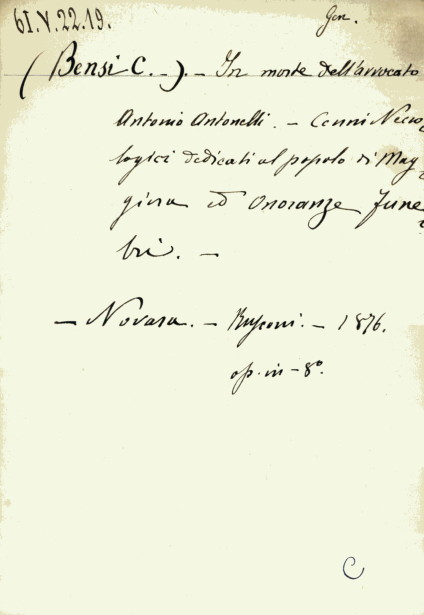 61.V.22.19.
Gen.
(Bensi C. -). - In morte dell'avvocato
Antonio Antonelli. - Cenni Necro
logici dedicati al popolo di Mag
giora ed Onoranze Fune
bri. -
- Novara. - Rusconi. - 1876.
op. in - 8°.
C